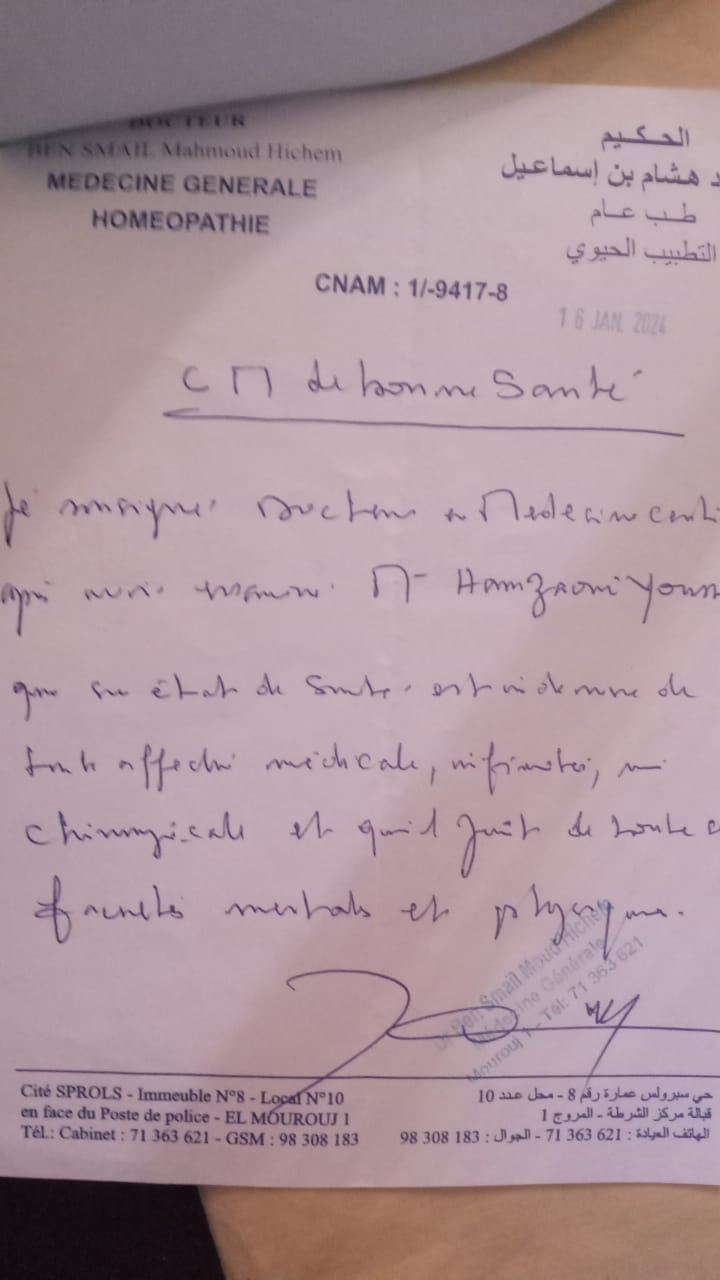 DOCTEUR
BEN SMAIL Mahmoud Hichem
MEDECINE GENERALE
HOMEOPATHIE
الحكيم
د هشام بن إسماعيل
طب عام
التطبيب الحيوي
CNAM : 1/-9417-8
16 JAN. 2024
CM de bonne Santé
Je Docteur en Medecine
Mr Hamzaoui
que son état de Santé est indemne de
toute affection médicale, ni
chirurgicale et qu'il jouit de toute
facultés mentals et physiques.
Dr Ben Smail Moud Hichem
Médecine Générale
Mourouj 1 - Tél: 71 363 621
Cité SPROLS - Immeuble N°8 - Local N°10
en face du Poste de police - EL MOUROUJ 1
Tél.: Cabinet : 71 363 621 - GSM : 98 308 183
حي سبرولس عمارة رقم 8 - محل عدد 10
قبالة مركز الشرطة - المروج 1
الهاتف العيادة : 621 363 71 - الجوال : 183 308 98